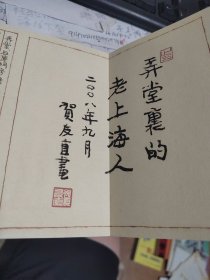 弄堂裏的
老上海人
二〇〇八年九月
賀友直畫